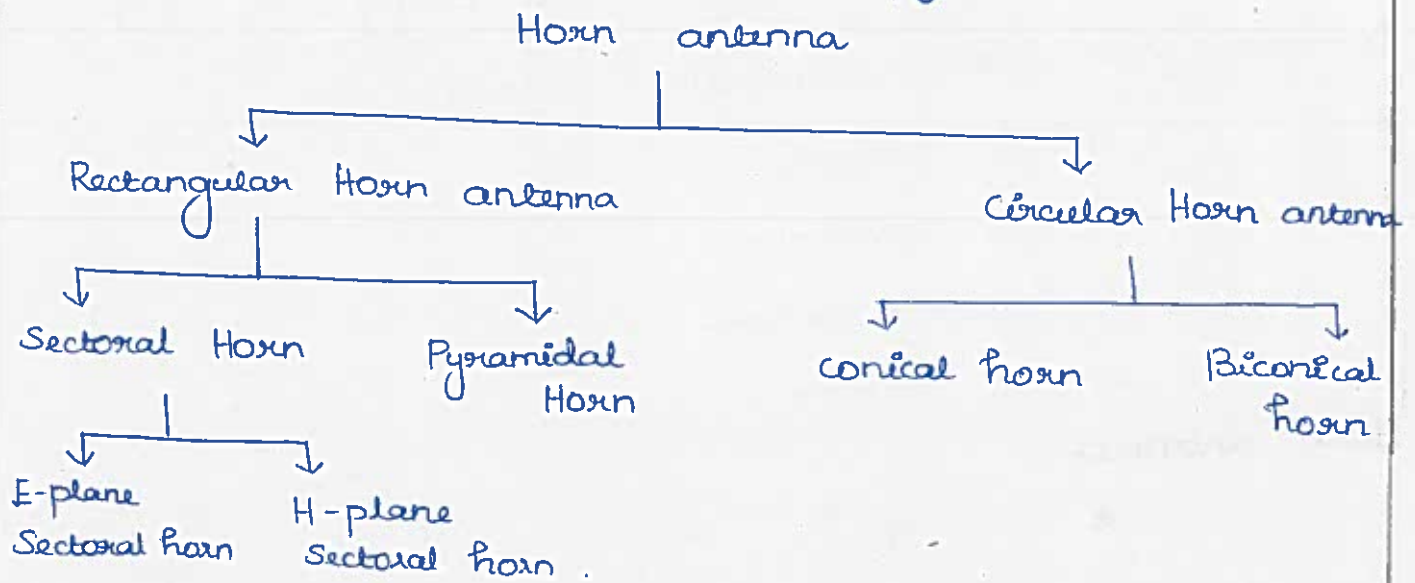 Horn antenna
Rectangular Horn antenna
Circular Horn antenna
Sectoral Horn
Pyramidal
Horn
conical horn
Biconical
horn
E-plane
Sectoral horn
H-plane
Sectoral horn.